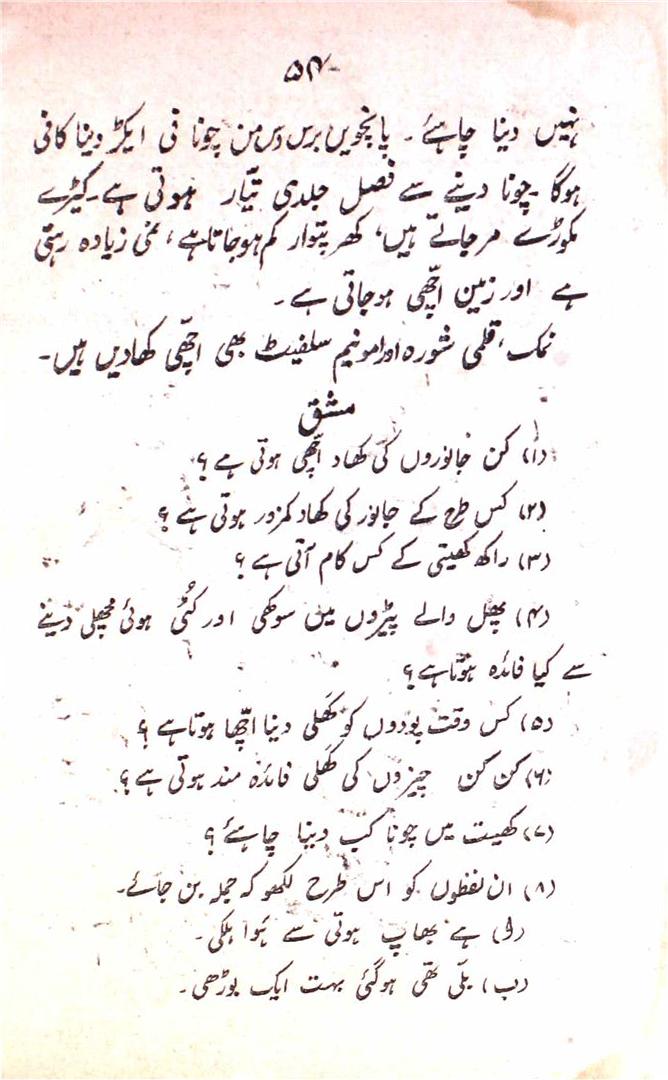 ۵۴
نہیں دینا چاہئے۔ پانچویں برس دس من چونا فی ایکڑ دینا کافی
ہوگا۔ چونا دینے سے فصل جلدی تیّار ہوتی ہے۔ کیڑے
مکوڑے مرجاتے ہیں، کھر پتوار کم ہوجاتا ہے، نمی زیادہ رہتی
ہے اور زمین اچّھی ہوجاتی ہے۔
نمک، قلمی شورہ اور امونیم سلفیٹ بھی اچّھی کھادیں ہیں۔
مشق
(۱) کن جانوروں کی کھاد اچّھی ہوتی ہے؟
(۲) کس طرح کے جانور کی کھاد کمزور ہوتی ہے؟
(۳) راکھ کھیتی کے کس کام آتی ہے؟
(۴) پھل والے پیڑوں میں سوکھی اور کُٹی ہوئی مچھلی دینے
سے کیا فائدہ ہوتا ہے؟
(۵) کس وقت پودوں کو کھَلی دینا اچّھا ہوتا ہے؟
(۶) کن کن چیزوں کی کھَلی فائدہ مند ہوتی ہے؟
(۷) کھیت میں چونا کب دینا چاہئے؟
(۸) ان لفظوں کو اس طرح لکھو کہ جملہ بن جائے۔
(۱) ہے بھاپ ہوتی سے ہَوا ہلکی۔
(ب) بلّی تھی ہوگئی بہت ایک بوڑھی۔